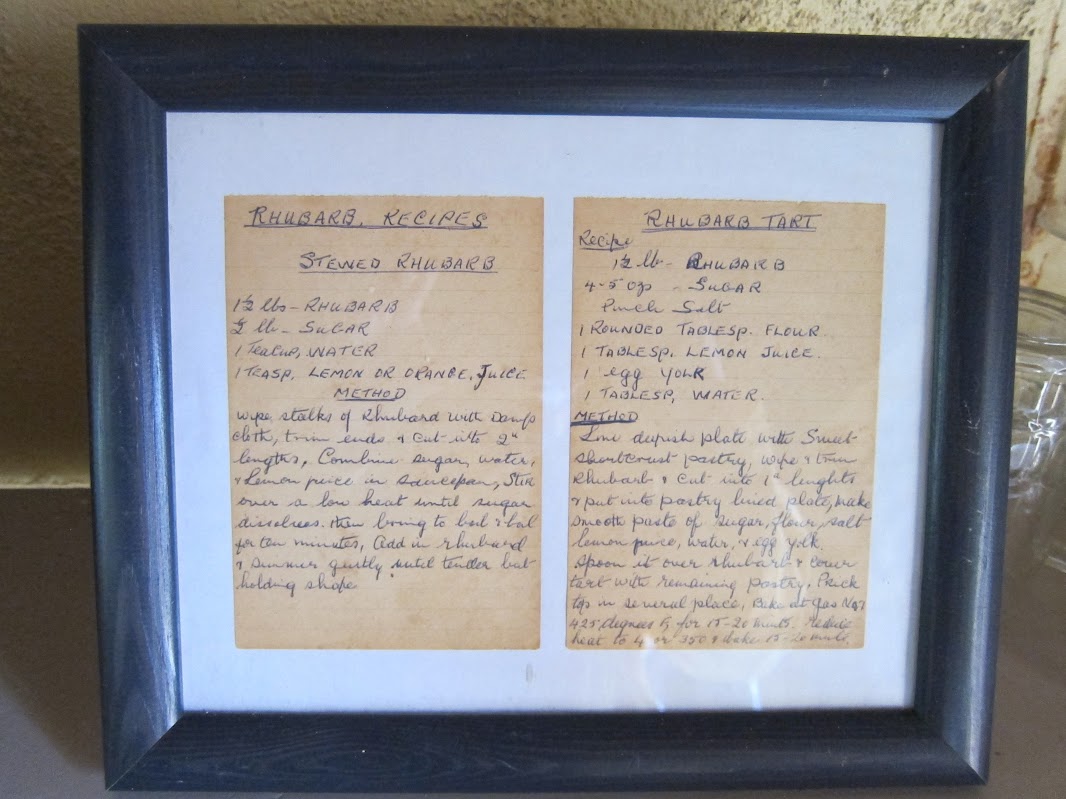 RHUBARB. RECIPES
STEWED RHUBARB
1½ lbs - RHUBARB
½ lb - SUGAR
1 Teacup, WATER
1 TEASP. LEMON OR ORANGE. JUICE
METHOD
wipe stalks of Rhubard with Damp
cloth, trim ends & cut into 2"
lengths, Combine sugar, water,
& Lemon juice in saucepan, Stir
over a low heat until sugar
dissolves. then bring to boil & boil
for ten minutes, Add in rhubard
& simmer gently until tender but
holding shape
RHUBARB TART
Recipe
1½ lb - RHUBARB
4-5 ozs - SUGAR
Pinch Salt
1 ROUNDED TABLESP. FLOUR.
1 TABLESP. LEMON JUICE.
1 egg YOLK
1 TABLESP, WATER.
METHOD
Line deepish plate with Sweet
shortcrust pastry, wipe & trim
Rhubarb & cut into 1" lenghts
& put into pastry lined plate, make
smooth paste of sugar, flour, salt
lemon juice, water, & egg yolk.
Spoon it over rhubarb & cover
tart with remaining pastry. Prick
top in several place, Bake at gas No 7
425 degrees F, for 15-20 minits. Reduce
heat to 4 or 350 & bake 15-20 minits.